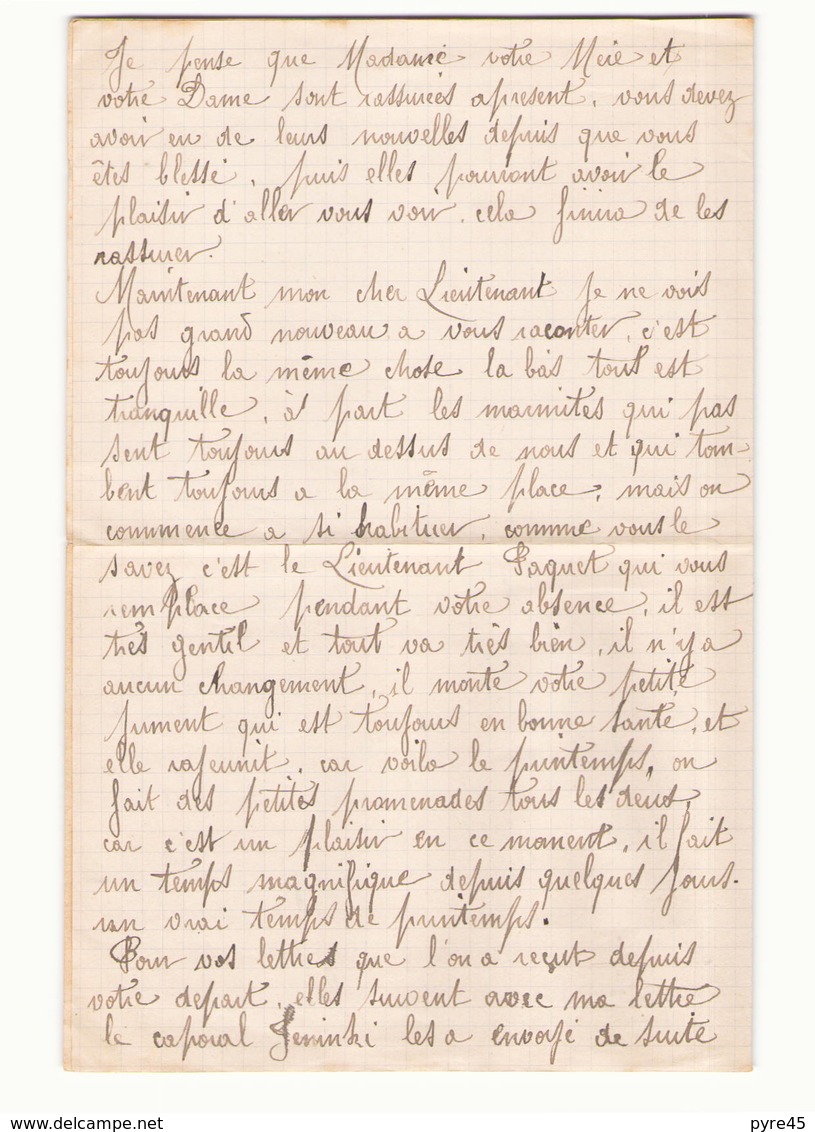 Je pense que Madame votre Mère et
votre Dame sont rassurées apresent, vous devez
avoir eu de leurs nouvelles depuis que vous
êtes blessé, puis elles pourront avoir le
plaisir d'aller vous voir, cela finira de les
rassurer.
Maintenant mon cher Lieutenant je ne vois
pas grand nouveau a vous raconter, c'est
toujours la même chose la bas tout est
tranquille, à part les marmites qui pas
sent toujours au dessus de nous et qui tom-
bent toujours a la même place, mais on
commence a si habituer, comme vous le
savez c'est le Lieutenant Paquet qui vous
remplace pendant votre absence, il est
très gentil et tout va très bien, il n'y a
aucun changement, il monte votre petite
jument qui est toujours en bonne santé, et
elle rajeunit, car voila le printemps, on
fait des petites promenades tous les deux,
car c'est un plaisir en ce moment, il fait
un temps magnifique depuis quelques jours.
un vrai temps de printemps.
Pour vos lettres que l'on a reçut depuis
votre depart, elles suivent avec ma lettre
le caporal Jeninski les a envoyé de suite
www.delcampe.net
pyre45